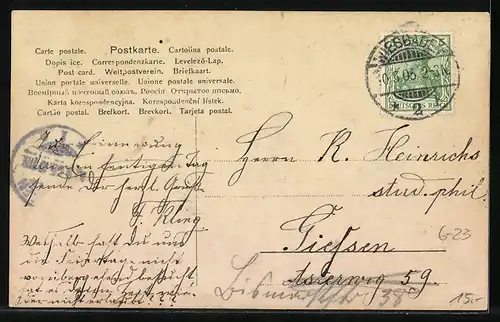 Carte postale. Postkarte. Cartolina postale.
Dopis ice. Correspondenzkarte. Levelező-Lap.
Post card. Weltpostverein. Briefkaart.
Union postale universelle. Unione postale universale.
Всемірный почтовый союзъ. Россія Открытое письмо.
Karta korespondencyjna. Korespondenční lístek.
Cartão postal. Brefkort. Brevkort. Tarjeta postal.
WIESBADEN
5.05 2-3N
* 2
DEUTSCHES REICH
Zur Erinnerung
an den heutigen Tag
sende Dir herzl. Gruß
Kling
Weshalb hast Du uns
die Feiertage nicht
Herrn R. Heinrichs
stud. phil.
Giessen
Asterweg 59.
Bismarckstr. 38
6-23
15.-